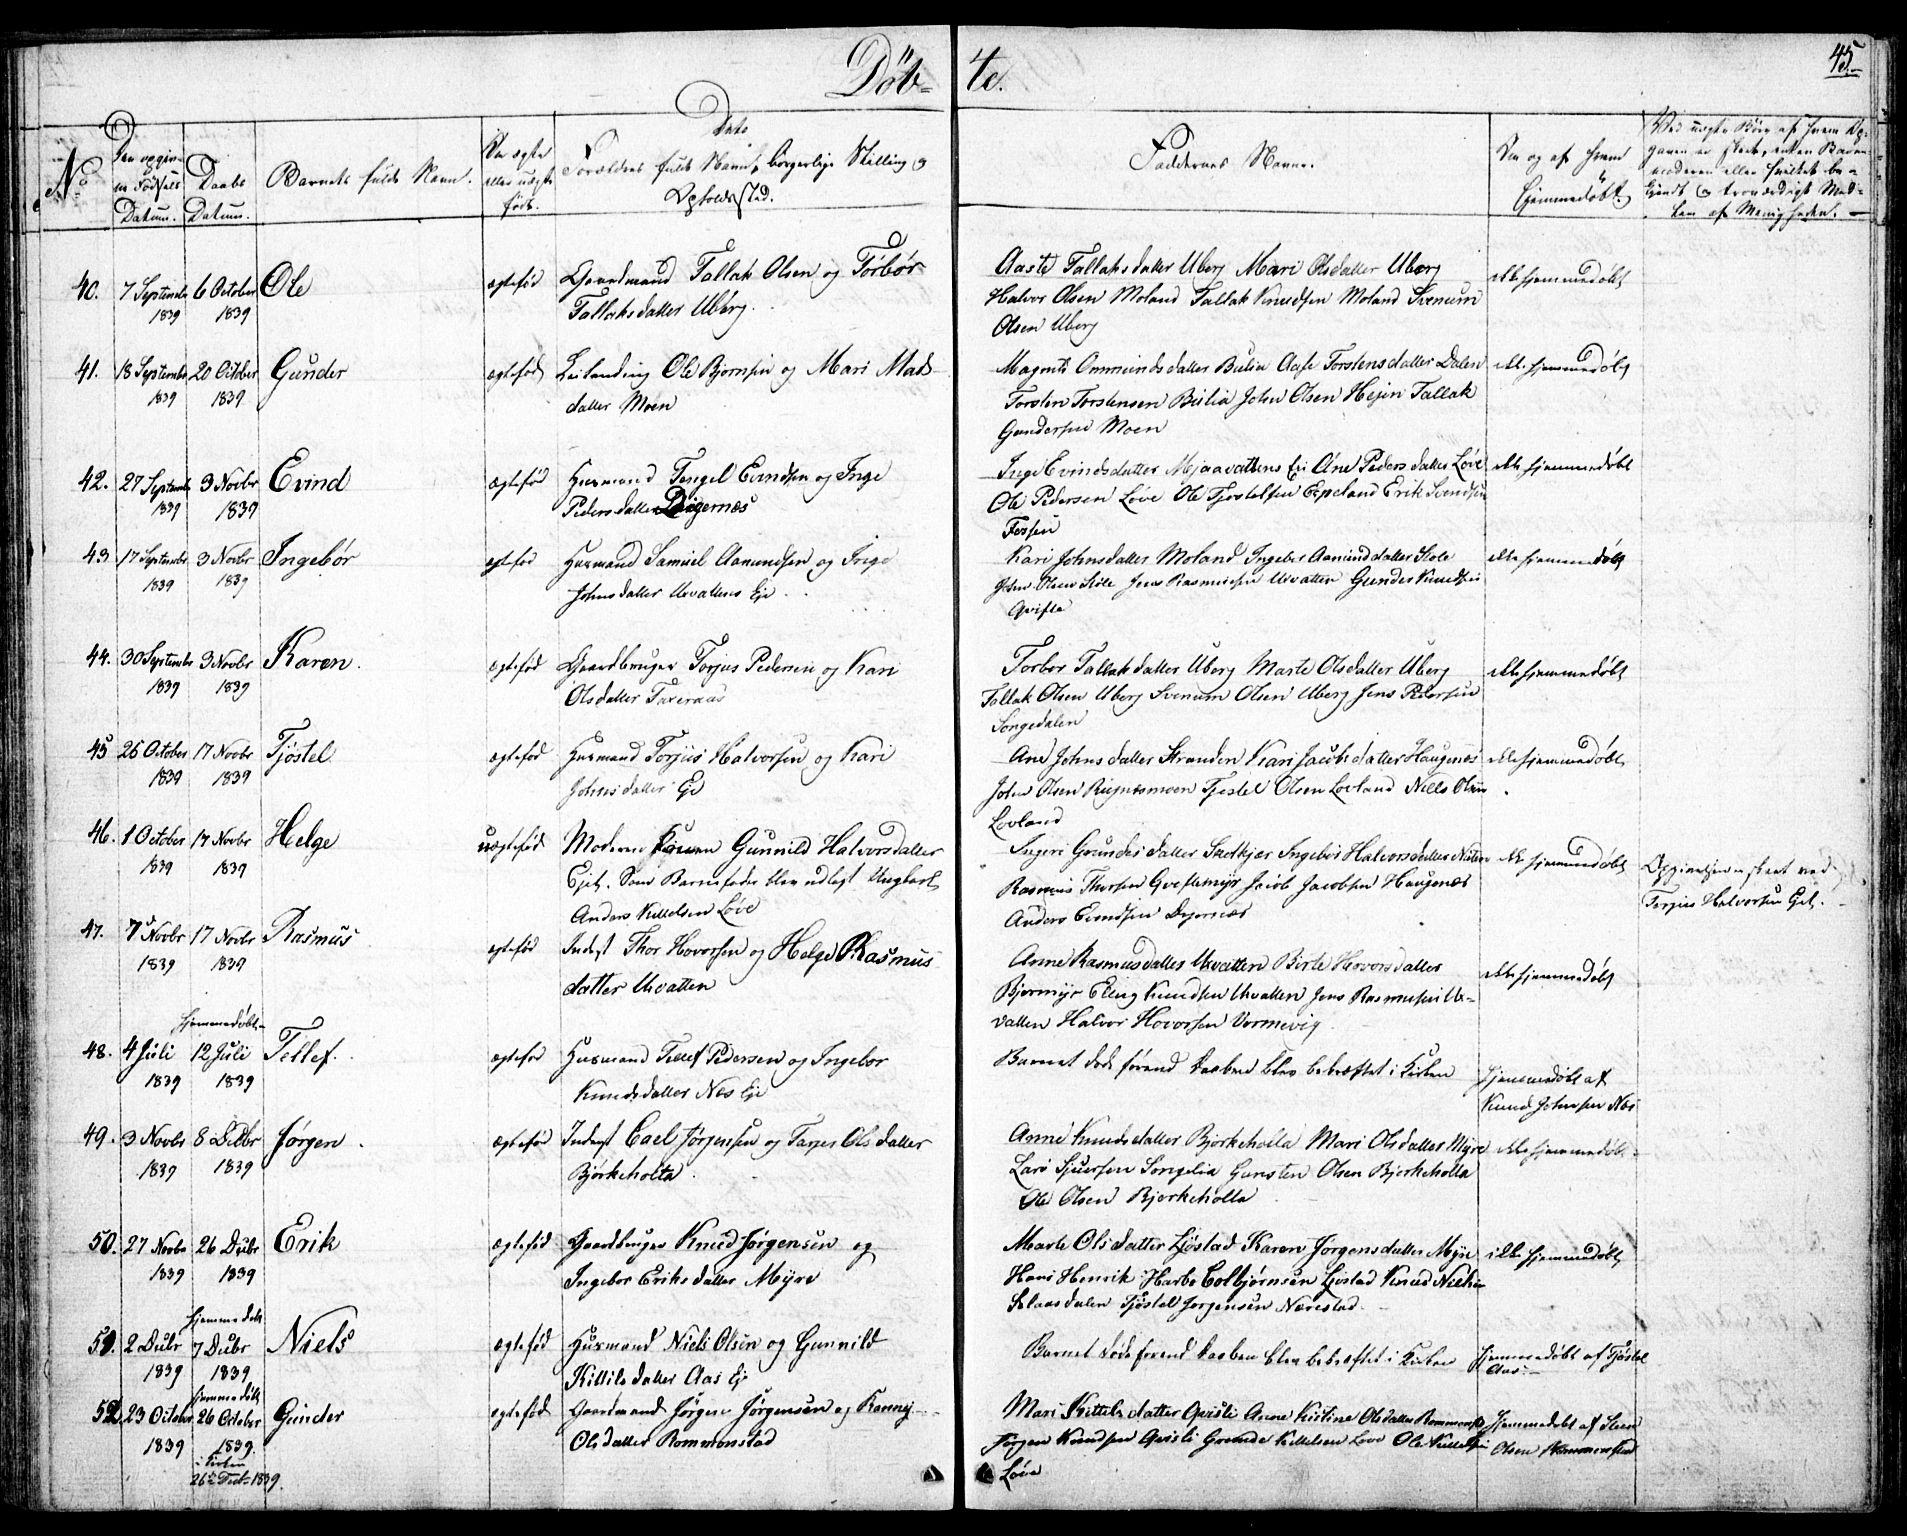 Döbte.
45.
No
Den opgivne Fødsels Datum.
Daabs Datum.
Barnets fulde Navn.
Om ægte eller uægte født.
Dato
Forældres fulde Navn, borgerlige Stilling og Opholdssted.
Faddernes Navne.
Om og af hvem hjemmedøbt.
40. 7 September 1839 6 October 1839 Ole ægtefød Gaardmand Tallak Olsen og Torbør
Tallaksdatter Uberg.
Aaste Tallaksdatter Uberg Mari Olsdatter Uberg
Halvor Olsen Moland Tallak Knudsen Moland Svenum
Olsen Uberg
ikke hjemmedøbt
41. 18 September 1839 20 October 1839 Gunder ægtefød Leilending Ole Bjornsen og Mari Mads
datter Moen
Magnil Ommundsdatter Bulia Aase Torstensdatter Dalen
Torsten Torstensen Bulia John Olsen Hejen Tallak
Gundersen Moen
ikke hjemmedøbt
42. 27 September 1839 3 Novbr 1839 Evind ægtefød Husmand Tengel Evindsen og Inge
Pedersdatter Digernæs
Inge Evindsdatter Mjaavattens Eie Ane Pedersdatter Løve
Ole Pedersen Løve Ole Tjostelsen Espeland Erik Svendsen
ikke hjemmedøbt
43. 17 September 1839 3 Novbr 1839 Ingebør ægtefød Husmand Samuel Aamundsen og Inge
Johnsdatter Uvattens Eje
Kari Johnsdatter Moland Ingebor Aamundsdatter Stole
John Olsen Stole Jens Rasmusen Uvatten Gunder Knudsen
ikke hjemmedøbt
44. 30 September 1839 3 Novbr 1839 Karen. ægtefød Gaardbruger Torjus Pedersen og Kari
Olsdatter Taxeraas
Torbor Tallaksdatter Uberg Marte Olsdatter Uberg
Tallak Olsen Uberg Svenum Olsen Uberg Jens Petersen
Songedalen
ikke hjemmedøbt
45 26 October 1839 17 Novbr 1839 Tjöstel ægtefød Husmand Torjus Halvorsen og Kari
Johnsdatter Eje
Ane Johnsdatter Stranden Kari Jacobsdatter Haugenæs
John Olsen Tjøstel Olsen Lovland Niels Olsen
Lovland
ikke hjemmedøbt
46. 1 October 1839 17 Novbr 1839 Helge uægtefød Moderen Gunnild Halvorsdatter
Ejet. Som Barnefader blev udlagt Ungkarl
Anders Kittelsen Løve
Ingeri Gundersdatter Ingebor Halvorsdatter
Rasmus Thorsen Jacob Jacobsen Haugenæs
Anders Evindsen
ikke hjemmedøbt
Opgivelsen skeet ved
Torjus Halvorsen Ejet.
47. 7 Novbr 1839 17 Novbr 1839 Rasmus ægtefød Inderst Thor Hovorsen og Helge Rasmus
datter Uvatten
Anne Rasmusdatter Uvatten Birte Hovorsdatter
Bjormyr Elling Knudsen Uvatten Jens Rasmusen U-
vatten Halvor Hovorsen Vormevig
ikke hjemmedøbt
48. 4 Juli 1839 hjemmedøbt 12 Juli 1839 Tellef. ægtefød Husmand Tellef Pedersen og Ingebor
Knudsdatter Næs Eje
Barnet døde førend Daaben blev bekræftet i Kirken
hjemmedøbt af
Knud Johnsen Næs
49. 3 Novbr 1839 8 Decbr 1839 Jörgen ægtefød Inderst Carl Jörgensen og Taran Olsdatter
Björkeholta
Anne Knudsdatter Bjorkeholta Mari Olsdatter Myre
Lars Sjursen Songelia Gunsten Olsen Bjerkeholta
Ole Olsen Bjerkeholta
ikke hjemmedøbt
50. 27 Novbr 1839 26 Decbr 1839 Erik ægtefød Gaardbruger Knud Jørgensen og
Ingebor Eriksdatter Myre
Marte Olsdatter Ljøstad Karen Jørgensdatter Myre
Hans Henrik Harbo Colbjørnsen Ljøstad Knud Nielsen
Tjøstel Jorgensen Nærestad
ikke hjemmedøbt
51. 2 Decbr 1839 hjemmedøbt 7 Decbr 1839 Niels ægtefød Husmand Niels Olsen og Gunnild
Kittilsdatter Aas Eje
Barnet døde førend Daaben blev bekræftet i Kirken
hjemmedøbt af Tjøstel
Aas
52. 23 October 1839 hjemmedøbt 26 October 1839. i Kirken 26de Decbr 1839. Gunder ægtefød Gaardmand Jörgen Jörgensen og Ranney
Olsdatter Rommonstad
Mari Kittelsdatter Qvisli Anne Kistine Olsdatter Rommonstad
Jörgen Knudsen Qvisli Gunder Kittelsen Løve Ole Kittelsen
Løve
hjemmedøbt af
Olsen Rommonstad